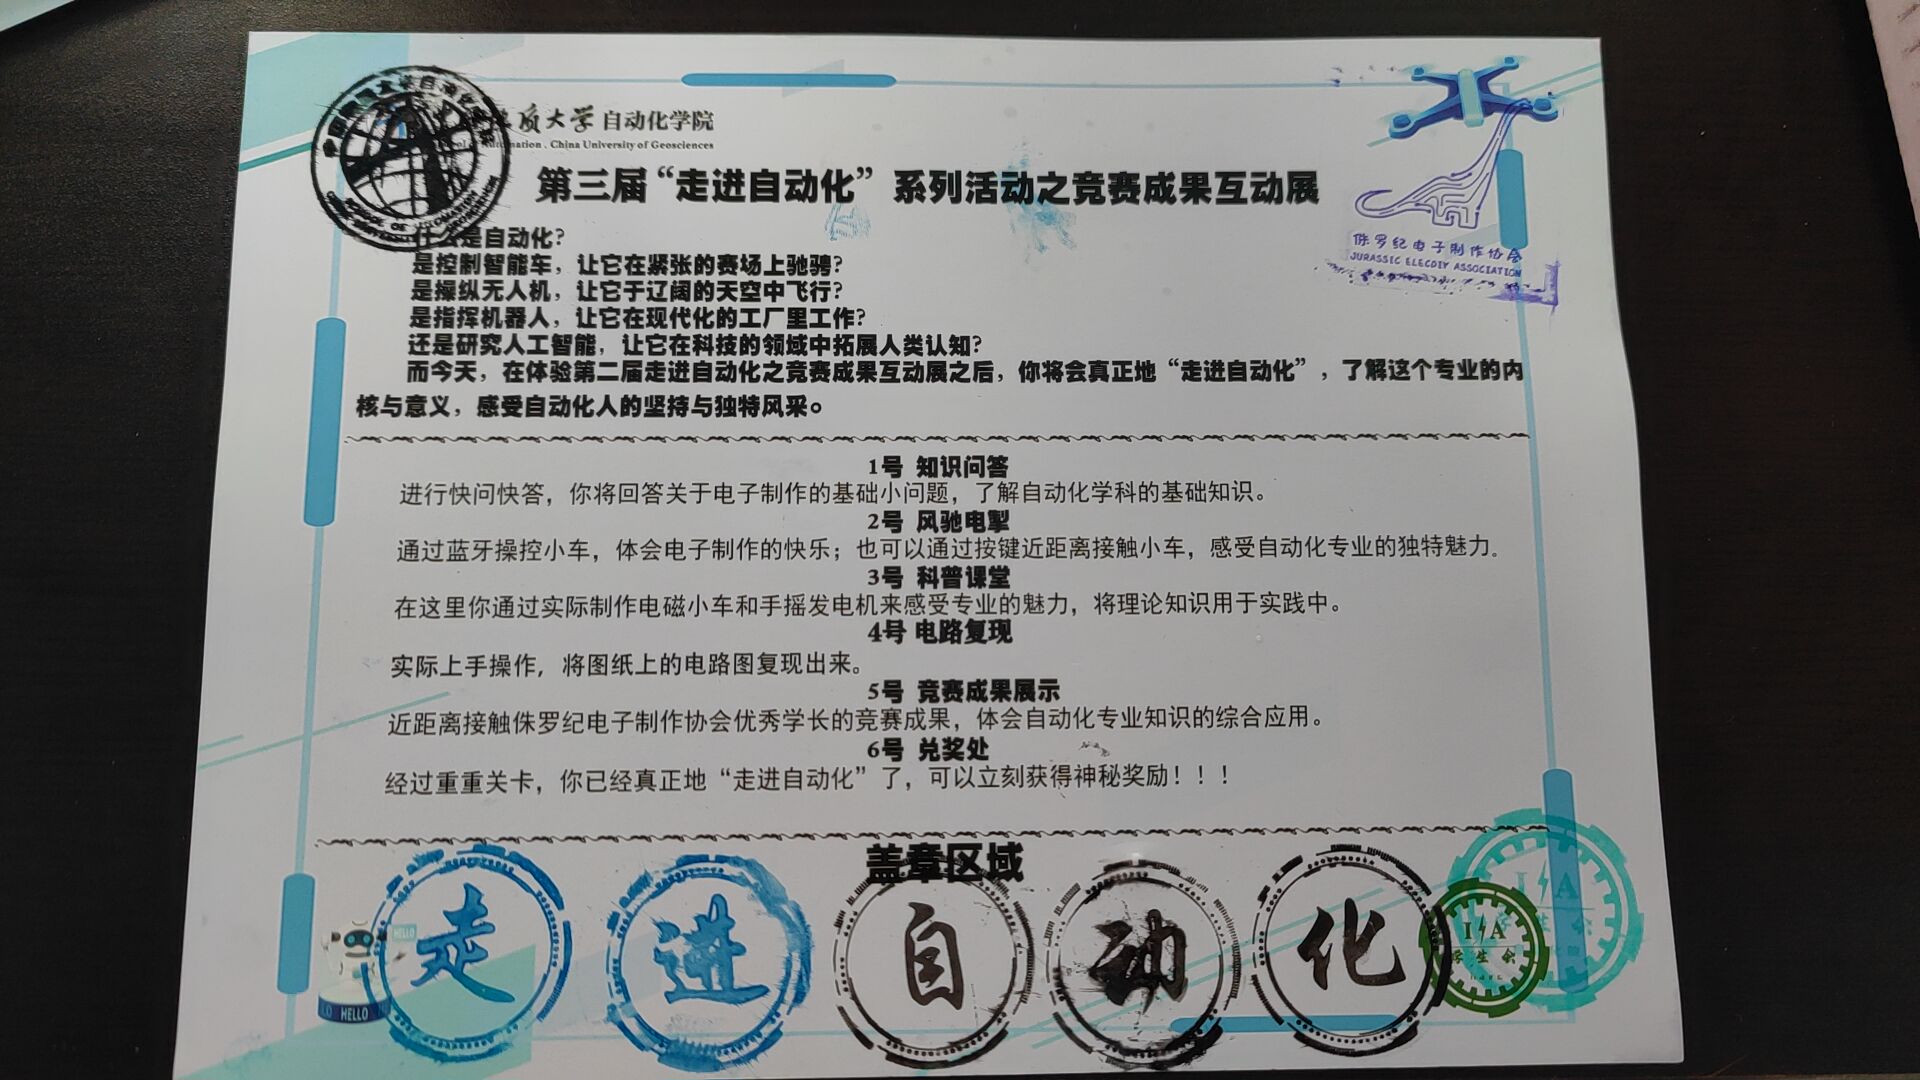 大学 自动化学院
China University of Geosciences
第三届“走进自动化”系列活动之竞赛成果互动展
是自动化?
是控制智能车，让它在紧张的赛场上驰骋?
是操纵无人机，让它于辽阔的天空中飞行?
是指挥机器人，让它在现代化的工厂里工作?
还是研究人工智能，让它在科技的领域中拓展人类认知?
而今天，在体验第二届走进自动化之竞赛成果互动展之后，你将会真正地“走进自动化”，了解这个专业的内
核与意义，感受自动化人的坚持与独特风采。
侏罗纪电子制作协会
JURASSIC ELECDIY ASSOCIATION
1号 知识问答
进行快问快答，你将回答关于电子制作的基础小问题，了解自动化学科的基础知识。
2号 风驰电掣
通过蓝牙操控小车，体会电子制作的快乐；也可以通过按键近距离接触小车，感受自动化专业的独特魅力。
3号 科普课堂
在这里你通过实际制作电磁小车和手摇发电机来感受专业的魅力，将理论知识用于实践中。
4号 电路复现
实际上手操作，将图纸上的电路图复现出来。
5号 竞赛成果展示
近距离接触侏罗纪电子制作协会优秀学长的竞赛成果，体会自动化专业知识的综合应用。
6号 兑奖处
经过重重关卡，你已经真正地“走进自动化”了，可以立刻获得神秘奖励！！！
盖章区域
走 进 自 动 化
HELLO
HELLO
学生会